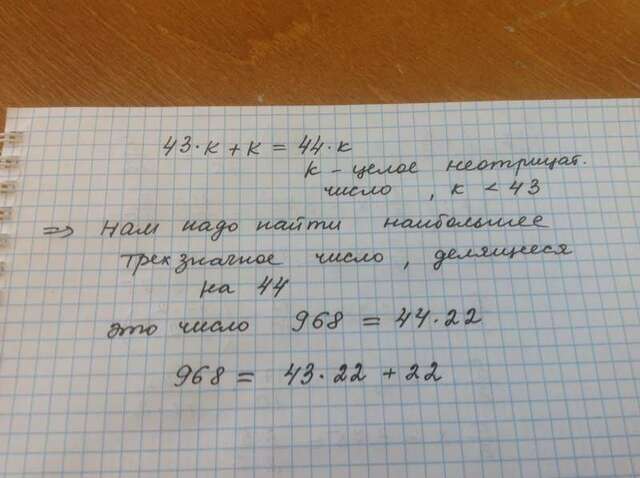 43·к + к = 44·к
к – целое неотрицат.
число , к < 43
=> нам надо найти наибольшее
трехзначное число , делящееся
на 44
это число 968 = 44·22
968 = 43·22 + 22